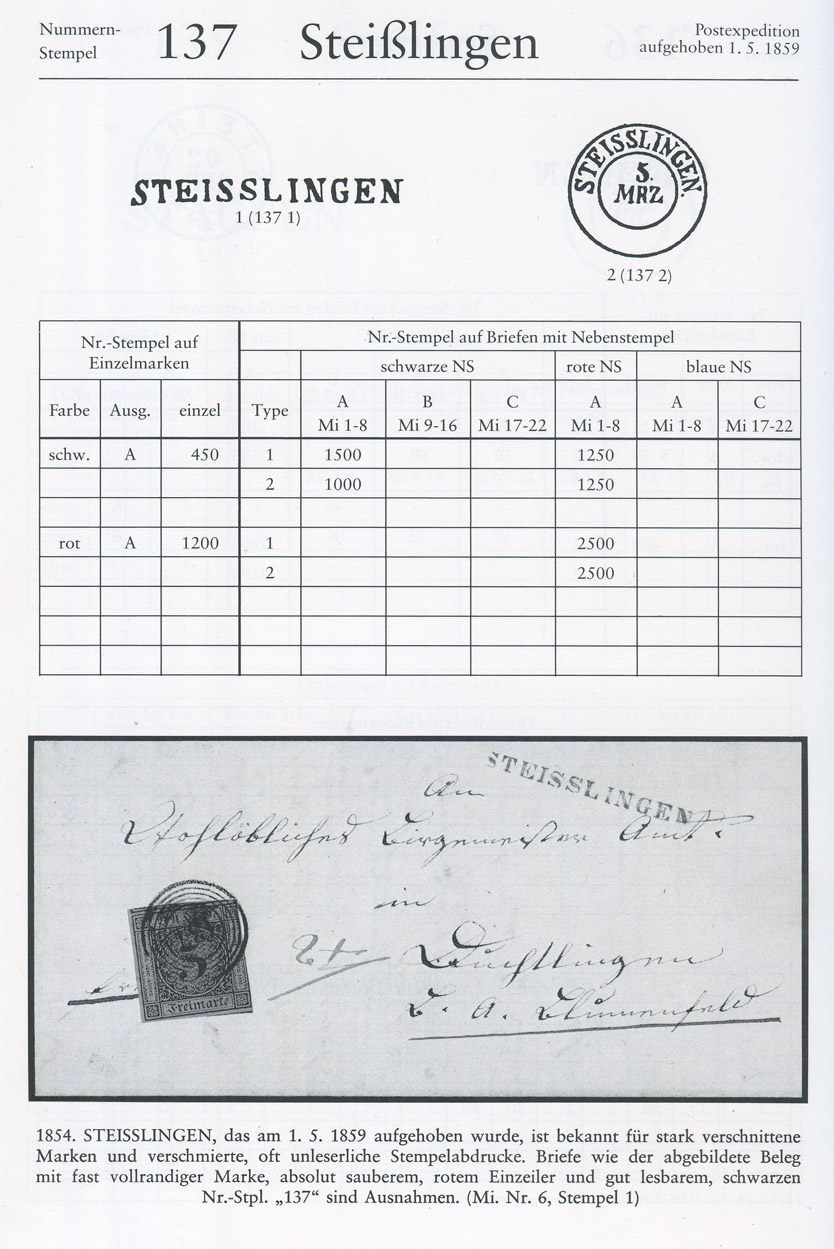 Nummern-
Stempel
137
Steißlingen
Postexpedition
aufgehoben 1. 5. 1859
STEISSLINGEN
1 (137 1)
STEISSLINGEN.
5.
MRZ
2 (137 2)
Nr.-Stempel auf
Einzelmarken
Nr.-Stempel auf Briefen mit Nebenstempel
schwarze NS rote NS blaue NS
Farbe Ausg. einzel Type A Mi 1-8 B Mi 9-16 C Mi 17-22 A Mi 1-8 A Mi 1-8 C Mi 17-22
schw. A 450 1 1500 1250
2 1000 1250
rot A 1200 1 2500
2 2500
STEISSLINGEN
An
Wohllöbliches Bürgemeister Amt.
in
Duchtlingen
B. A. Blumenfeld
Freimarte
1854. STEISSLINGEN, das am 1. 5. 1859 aufgehoben wurde, ist bekannt für stark verschnittene
Marken und verschmierte, oft unleserliche Stempelabdrucke. Briefe wie der abgebildete Beleg
mit fast vollrandiger Marke, absolut sauberem, rotem Einzeiler und gut lesbarem, schwarzen
Nr.-Stpl. „137“ sind Ausnahmen. (Mi. Nr. 6, Stempel 1)